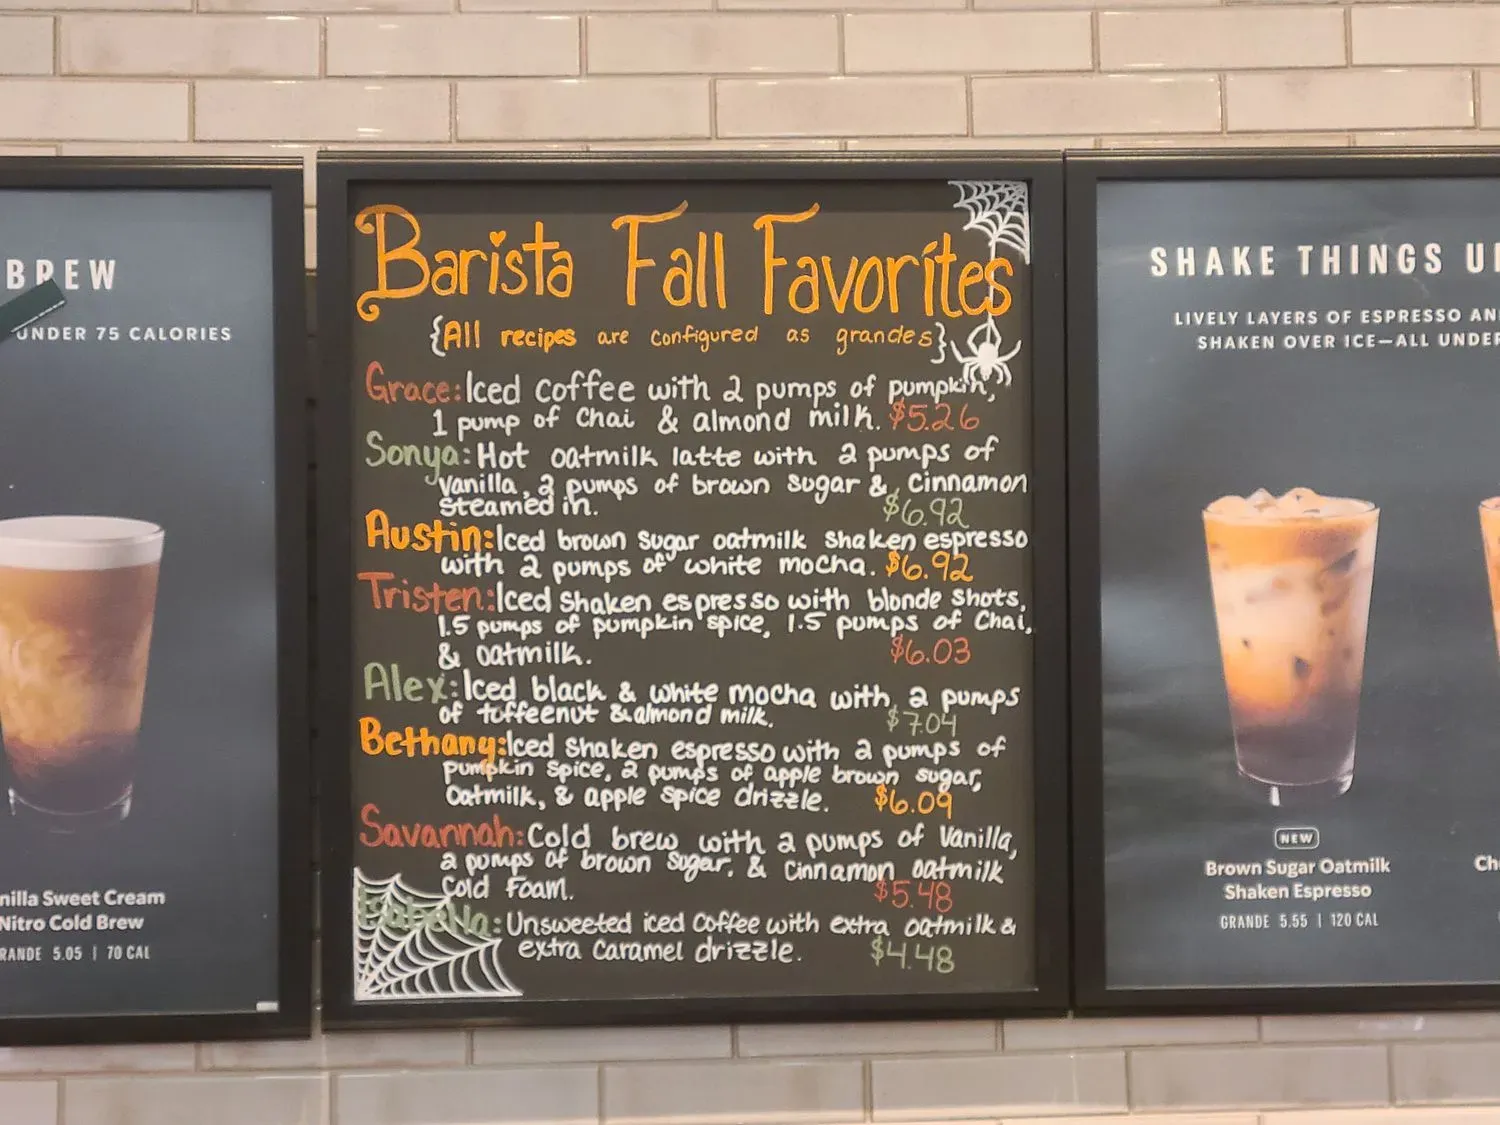 BREW
UNDER 75 CALORIES
nilla Sweet Cream
Nitro Cold Brew
RANDE 5.05 | 70 CAL
Barista Fall Favorites
{All recipes are configured as grandes}
Grace: Iced Coffee with 2 pumps of pumpkin,
1 pump of Chai & almond milk. $5.26
Sonya: Hot oatmilk latte with 2 pumps of
Vanilla, 2 pumps of brown sugar & cinnamon
steamed in. $6.92
Austin: Iced brown sugar oatmilk shaken espresso
with 2 pumps of white mocha. $6.92
Tristen: Iced shaken espresso with blonde shots,
1.5 pumps of pumpkin spice, 1.5 pumps of Chai,
& oatmilk. $6.03
Alex: Iced black & white mocha with 2 pumps
of toffeenut & almond milk. $7.04
Bethany: Iced shaken espresso with 2 pumps of
pumpkin spice, 2 pumps of apple brown sugar,
Oatmilk, & apple spice drizzle. $6.09
Savannah: Cold brew with 2 pumps of Vanilla,
2 pumps of brown sugar, & Cinnamon oatmilk
Cold Foam. $5.48
Isabella: Unsweeted iced coffee with extra oatmilk &
extra Caramel drizzle. $4.48
SHAKE THINGS U
LIVELY LAYERS OF ESPRESSO AN
SHAKEN OVER ICE—ALL UNDER
NEW
Brown Sugar Oatmilk
Shaken Espresso
GRANDE 5.55 | 120 CAL
Ch